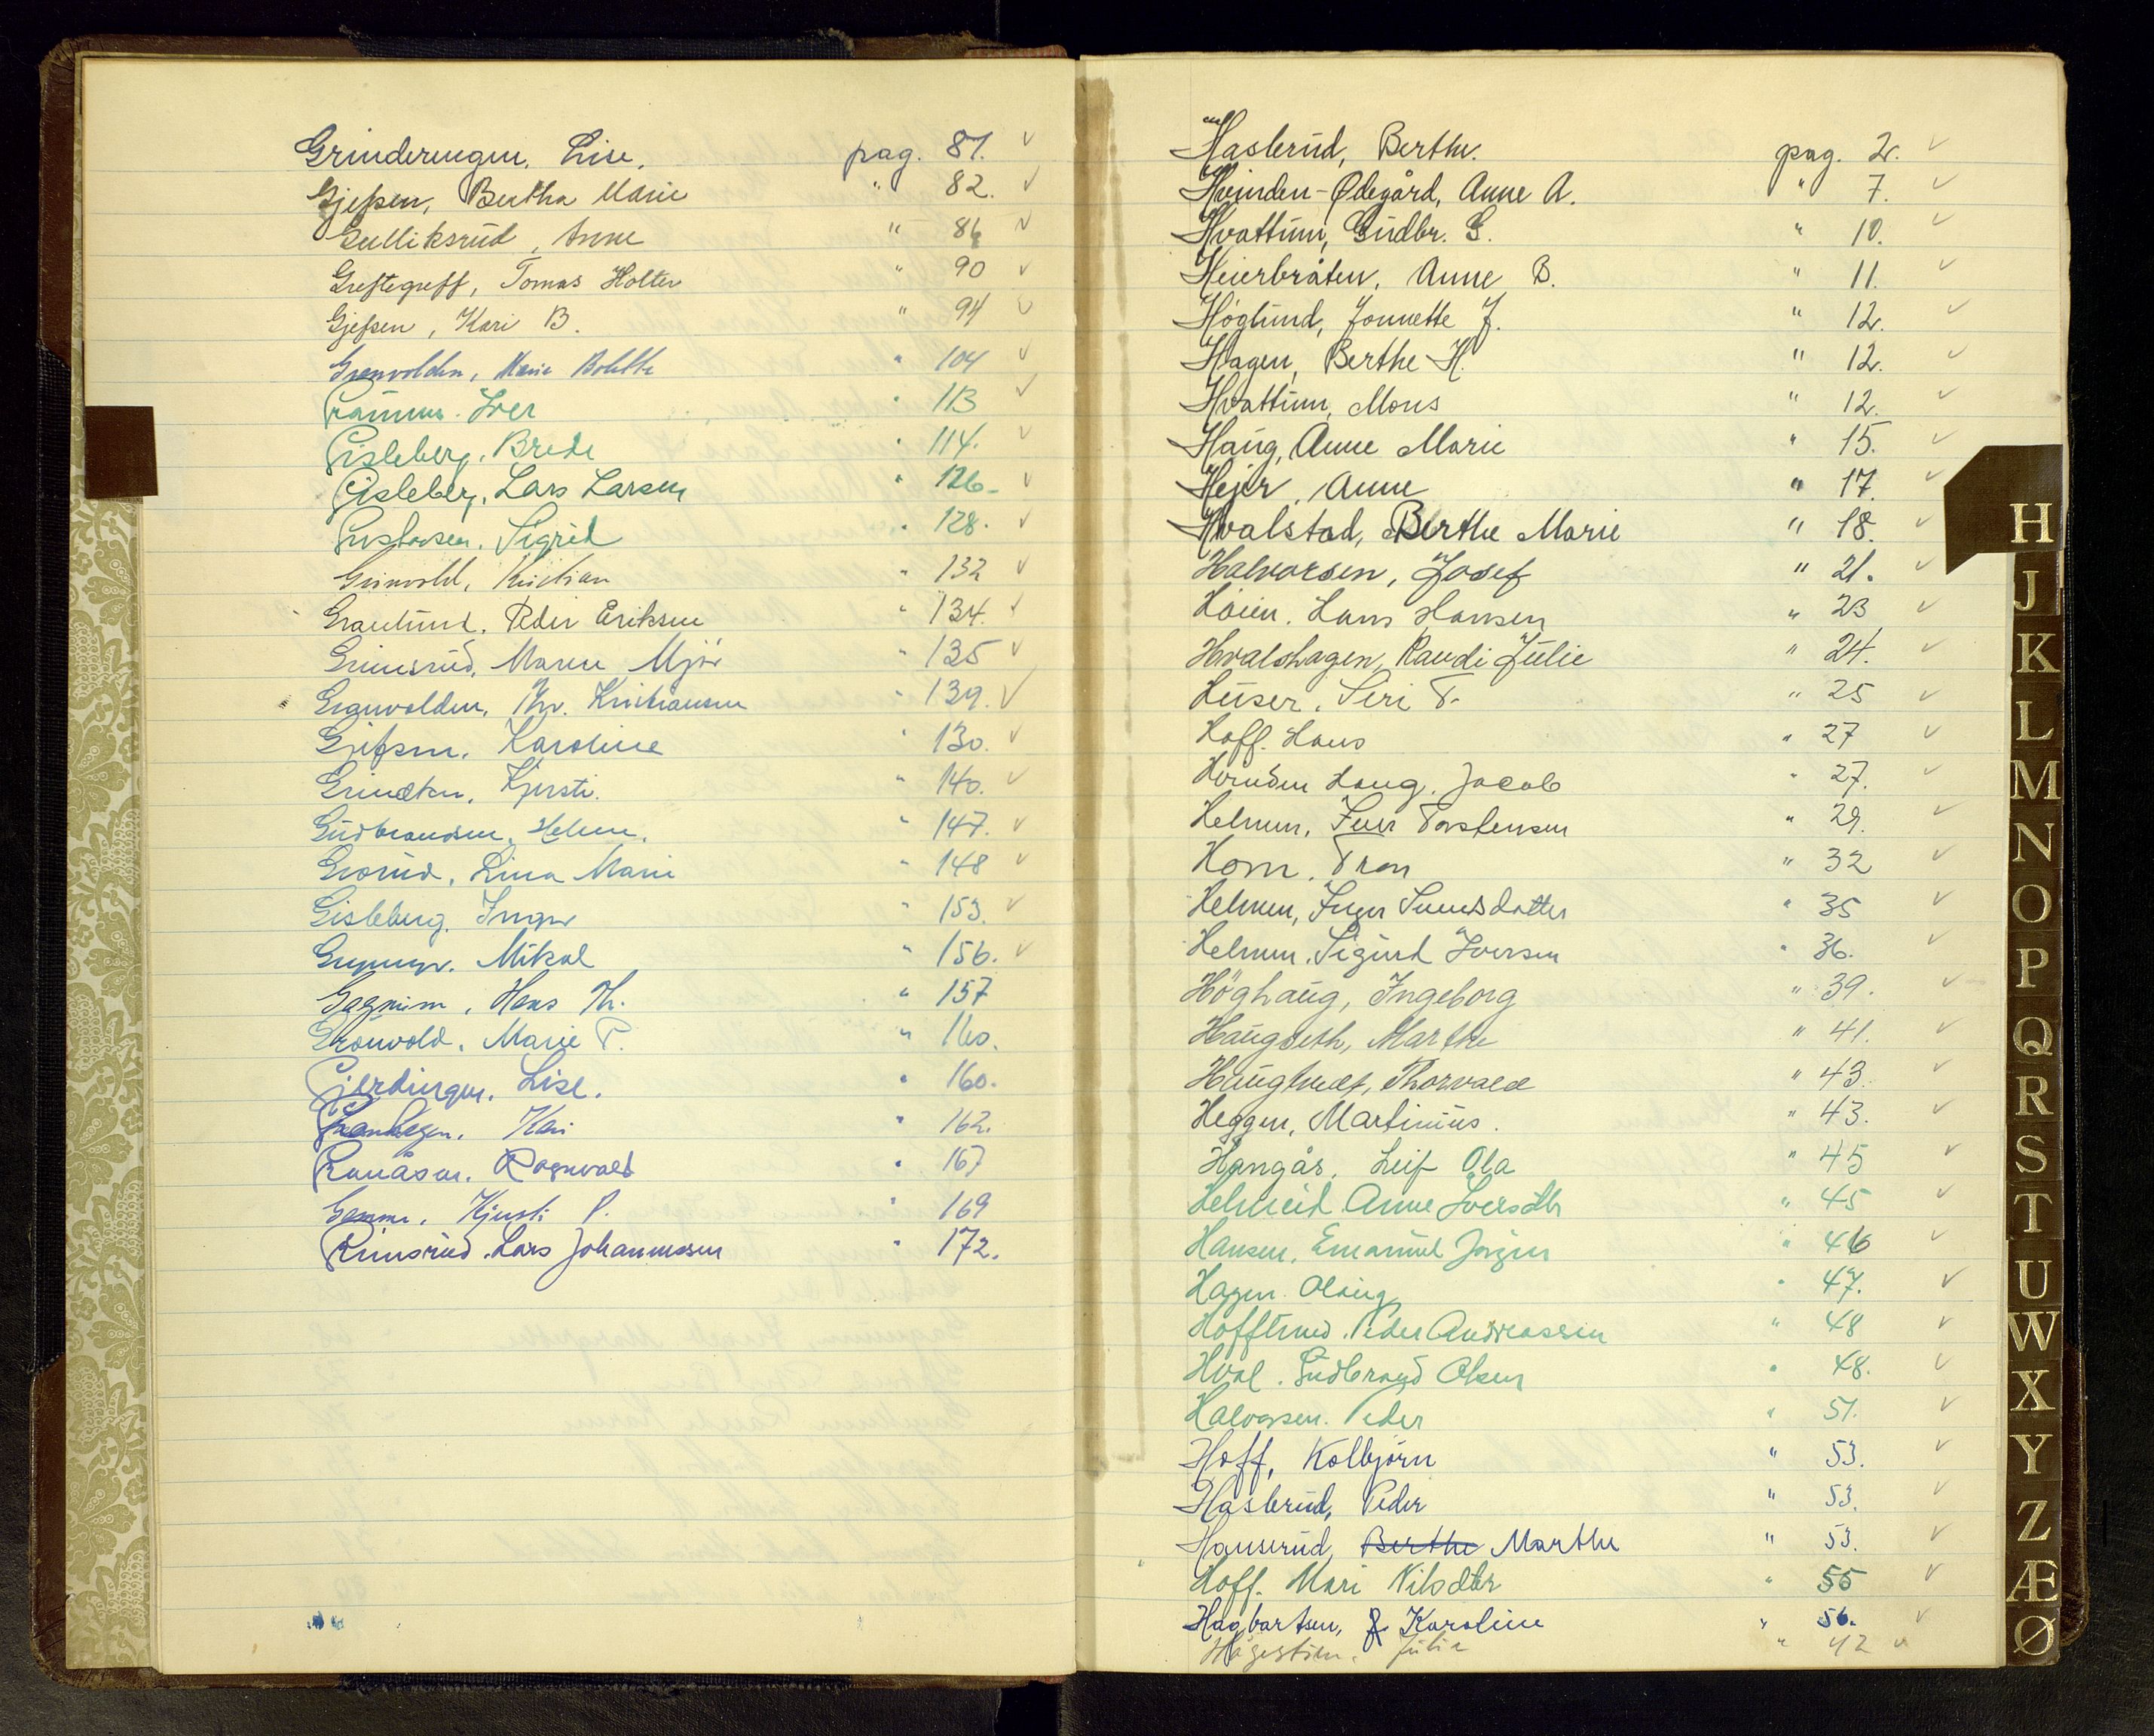 Grinderengen, Lise. pag. 87. ✓
Gjefsen, Bertha Marie " 82. ✓
Gulliksrud, Anne " 86 ✓
Greftegreff, Tomas Holter " 90 ✓
Gjefsen, Kari B. " 94 ✓
Granvolden, Marie Bolette " 104 ✓
Iver " 113 ✓
Gisleberg, Brede " 114. ✓
Gisleberg, Lars Larsen " 126- ✓
Gustavsen, Sigrid " 128. ✓
Grinvold, Kristian " 132 ✓
Granlund, Peder Eriksen " 134. ✓
Grimsrud, Maren Mjør " 135 ✓
Granvolden, Kristiansen " 139. ✓
Gjefsen, Karoline " 130. ✓
Kjersti. " 140. ✓
Gudbrandsen, Helene. " 147. ✓
Grorud, Lina Marie " 148 ✓
Gisleberg, Inger " 153. ✓
Mikal " 156. ✓
Gagnum, Hans Th. " 157
Grönvold, Marie P. " 160.
Gjerdingen, Lise. " 160.
Granhagen, Kari " 162.
Ragnvald " 167
Kjersti P. " 169
Grimsrud, Lars Johannessen " 172.
Haslerud, Berthe. pag. 2. ✓
Hvinden-Ødegård, Anne A. " 7. ✓
Hvattum, Gudbr. G. " 10. ✓
Heierbråten, Anne B. " 11. ✓
Höglund, Jonnette J. " 12. ✓
Hagen, Berthe H. " 12. ✓
Hvattum, Mons " 12. ✓
Haug, Anne Marie " 15. ✓
Hejer, Anne " 17. ✓
Hvalstad, Berthe Marie " 18. ✓
Halvorsen, Josef " 21. ✓
Höien, Hans Hansen " 23 ✓
Hvalshagen, Randi Julie " 24. ✓
Huser, Siri T. " 25 ✓
Hoff, Hans " 27 ✓
Hvinden Haug, Jacob " 27. ✓
Helmen, Iver Torstensen " 29. ✓
Horn, Tron " 32 ✓
Helmen, Inger Simensdatter " 35 ✓
Helmen, Sigurd Iversen " 36. ✓
Höghaug, Ingeborg " 39. ✓
Haugseth, Marthe " 41. ✓
Haugtvedt, Thorvald " 43. ✓
Heggen, Martinius. " 43. ✓
Hangås, Leif Ola " 45 ✓
Helmeid Anne Iversdtr " 45 ✓
Hansen, Emanuel Jörgen " 46 ✓
Hagen Olaug " 47. ✓
Hofflund, Peder Andreassen " 48 ✓
Hval, Gudbrand Olsen " 48. ✓
Halvorsen, Peder " 51. ✓
Hoff, Kolbjörn " 53. ✓
Haslerud, Peder " 53. ✓
Hanserud, Berthe Marthe " 53. ✓
Hoff, Mari Nilsdtr " 55 ✓
Hagbartsen, Karoline " 56. ✓
Hågestuen, Julia " 42 ✓
H
J
K
L
M
N
O
P
Q
R
S
T
U
W
X
Y
Z
Æ
Ø